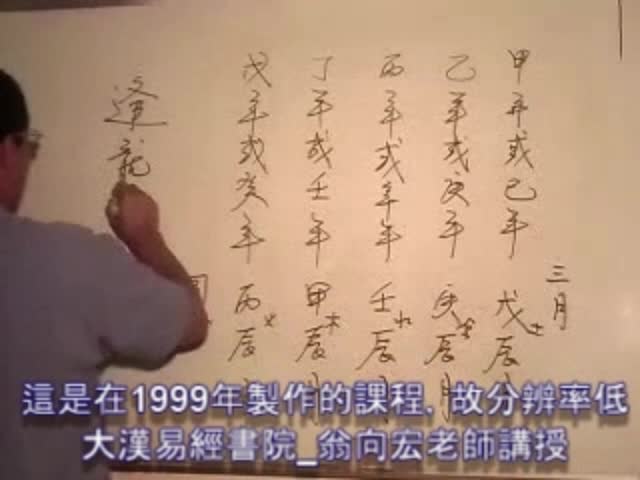 三月
甲年或己年 戊土辰月
乙年或庚年 庚金辰月
丙年或辛年 壬水辰月
丁年或壬年 甲木辰月
戊年或癸年 丙火辰
逢龍
這是在1999年製作的課程, 故分辨率低
大漢易經書院_翁向宏老師講授